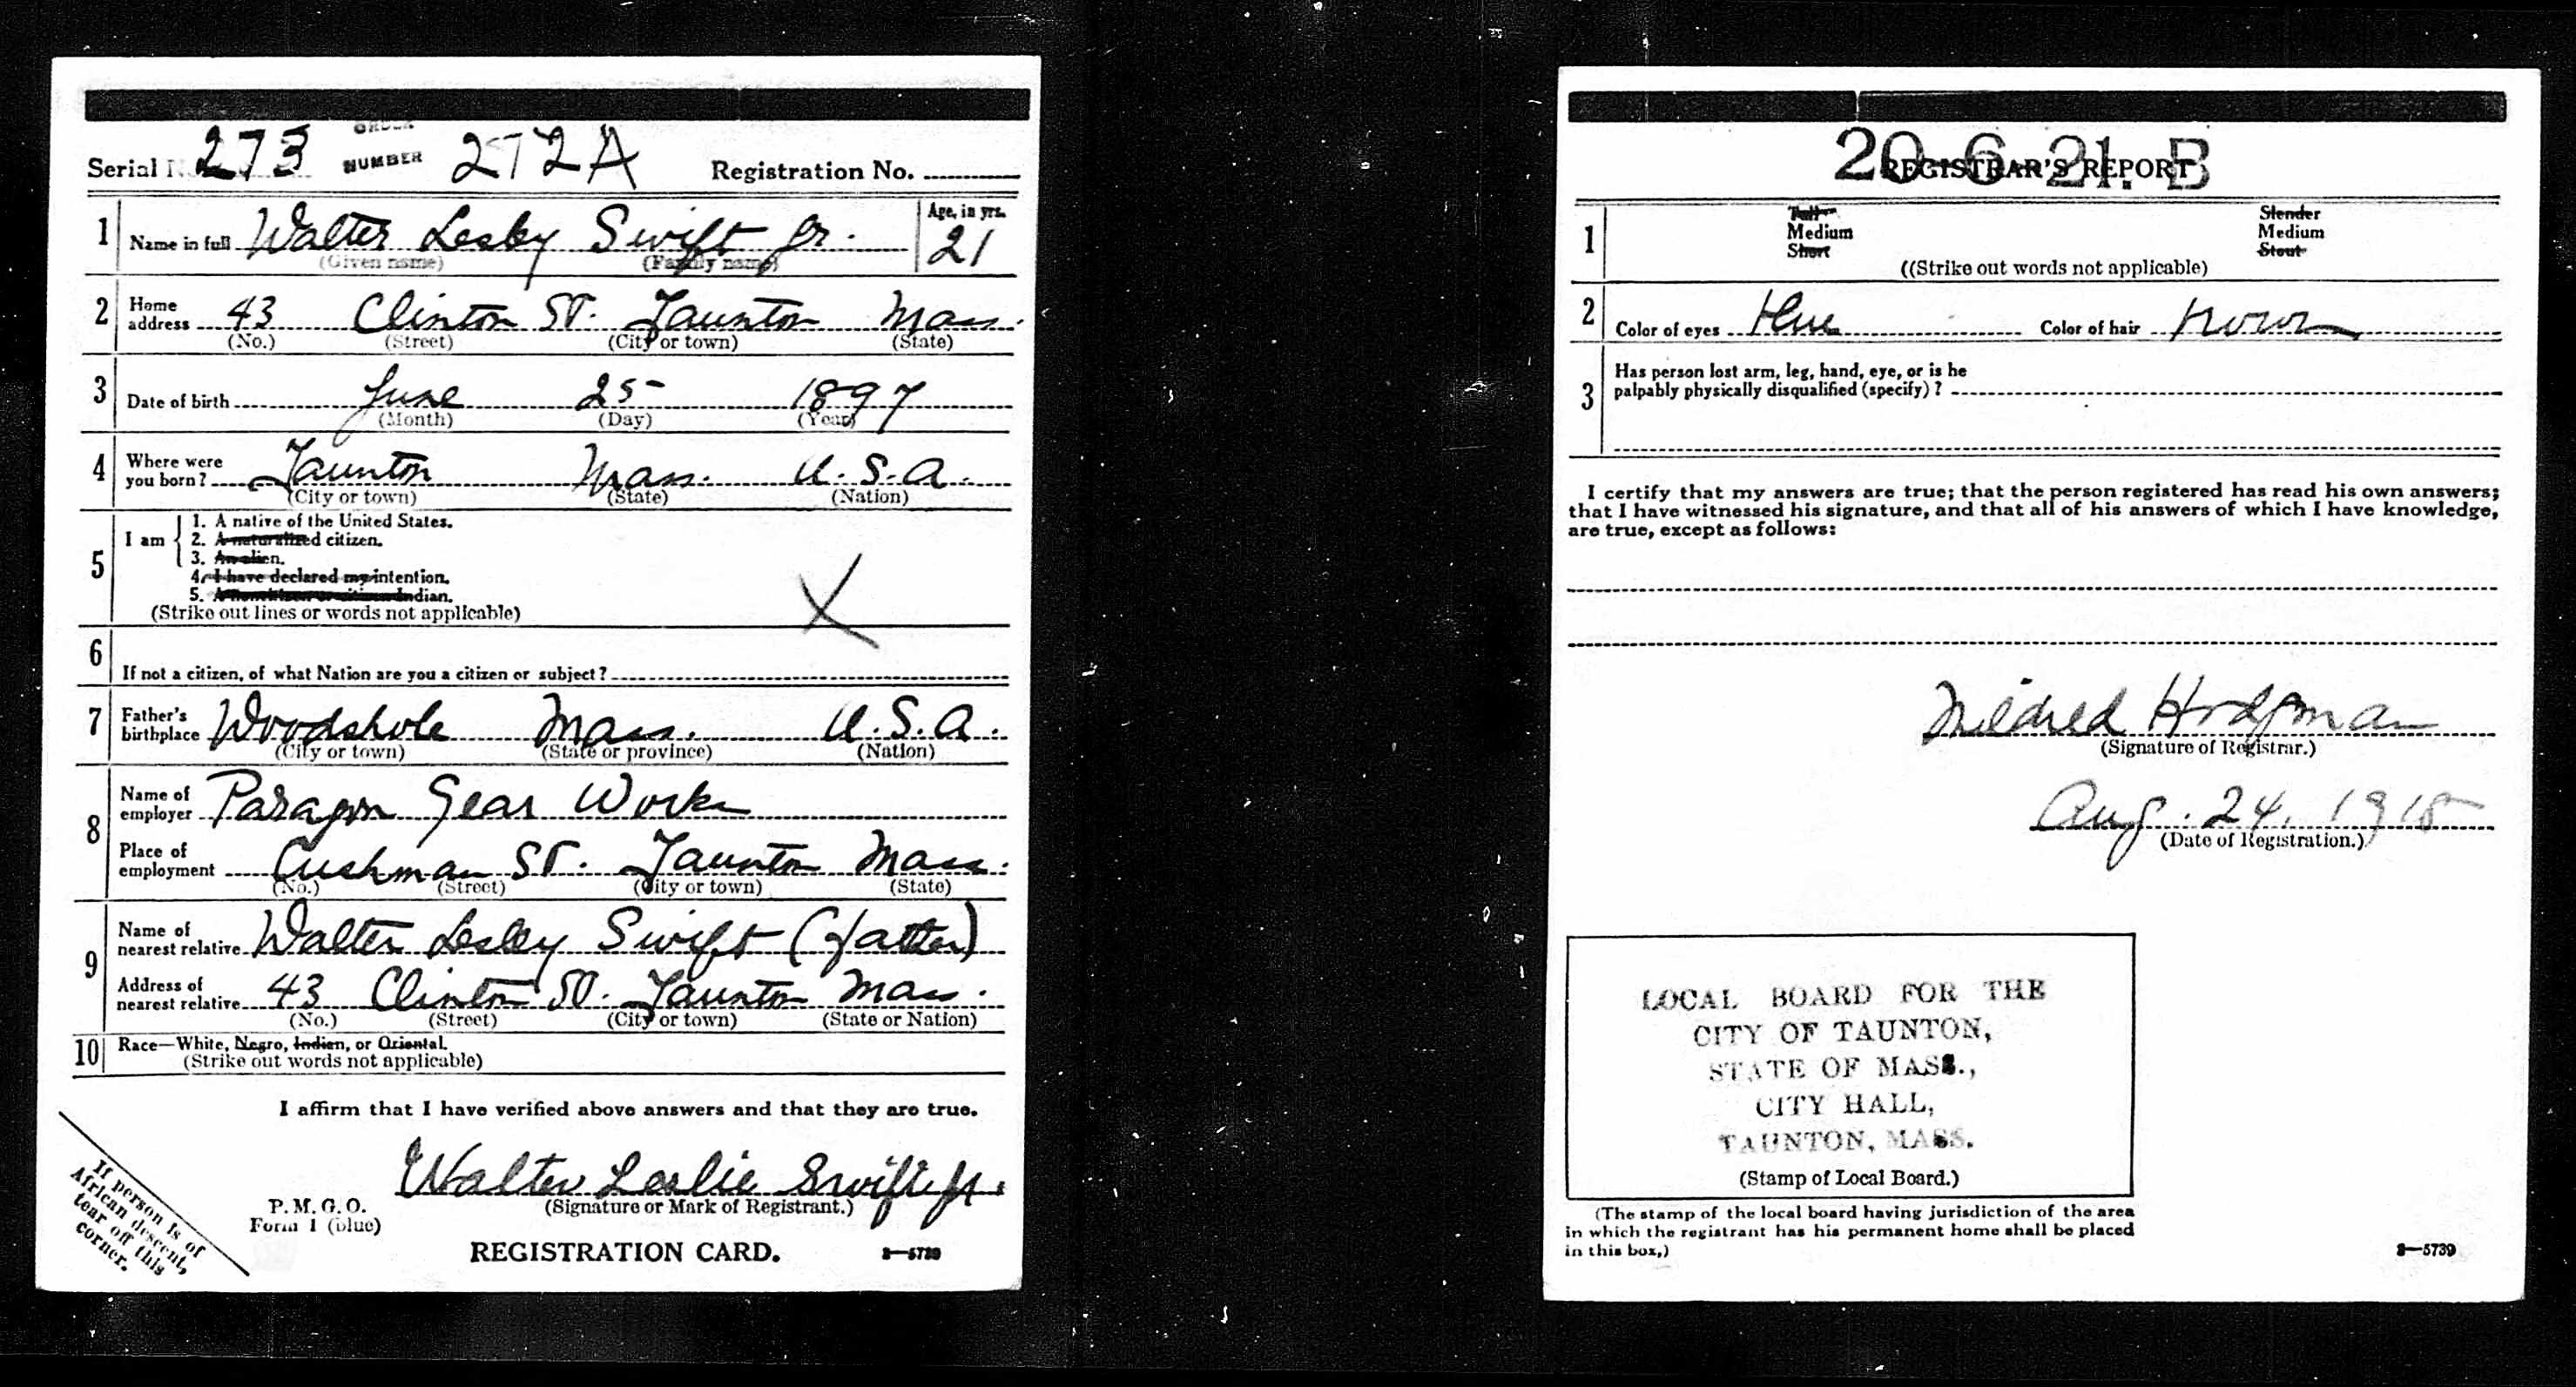 Serial No. 273 ORDER NUMBER 272A Registration No.
1 Name in full Walter Lesley Swift Jr. Age, in yrs. 21
(Given name) (Family name)
2 Home address 43 Clinton St. Taunton Mass.
(No.) (Street) (City or town) (State)
3 Date of birth June 25 1897
(Month) (Day) (Year)
4 Where were you born? Taunton Mass. U.S.A.
(City or town) (State) (Nation)
5 I am
1. A native of the United States.
2. A naturalized citizen.
3. An alien.
4. I have declared my intention.
5. A noncitizen or citizen Indian.
(Strike out lines or words not applicable)
X
6 If not a citizen, of what Nation are you a citizen or subject?
7 Father's birthplace Woodshole Mass. U.S.A.
(City or town) (State or province) (Nation)
8 Name of employer Paragon Gear Works
Place of employment Cushman St. Taunton Mass.
(No.) (Street) (City or town) (State)
9 Name of nearest relative Walter Lesley Swift (father)
Address of nearest relative 43 Clinton St. Taunton Mass.
(No.) (Street) (City or town) (State or Nation)
10 Race—White, Negro, Indian, or Oriental.
(Strike out words not applicable)
I affirm that I have verified above answers and that they are true.
Walter Leslie Swift Jr.
(Signature or Mark of Registrant.)
P. M. G. O.
Form 1 (blue)
REGISTRATION CARD. 3—5739
If person is of
African descent,
tear off this
corner.
20-6-21. B
REGISTRAR'S REPORT
1 Tall Slender
Medium Medium
Short Stout
((Strike out words not applicable)
2 Color of eyes Blue Color of hair Brown
3 Has person lost arm, leg, hand, eye, or is he
palpably physically disqualified (specify)?
I certify that my answers are true; that the person registered has read his own answers;
that I have witnessed his signature, and that all of his answers of which I have knowledge,
are true, except as follows:
Mildred Hodgman
(Signature of Registrar.)
Aug. 24, 1918
(Date of Registration.)
LOCAL BOARD FOR THE
CITY OF TAUNTON,
STATE OF MASS.,
CITY HALL,
TAUNTON, MASS.
(Stamp of Local Board.)
(The stamp of the local board having jurisdiction of the area
in which the registrant has his permanent home shall be placed
in this box,)
3—5739